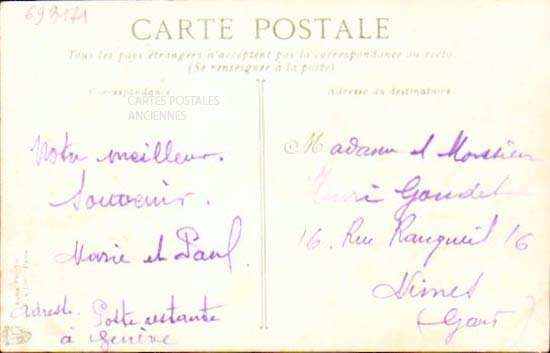 693171
CARTE POSTALE
Tous les pays étrangers n'acceptent pas la correspondance au recto.
(Se renseigner à la poste)
Correspondance
CARTES POSTALES
ANCIENNES
Notre meilleur
Souvenir.
Marie et Paul.
Adresse. Poste restante
à Genève
Adresse du destinataire
Madame et Monsieur
Henri Goudet
16. Rue Ranqueil 16
Nimes
(Gard)